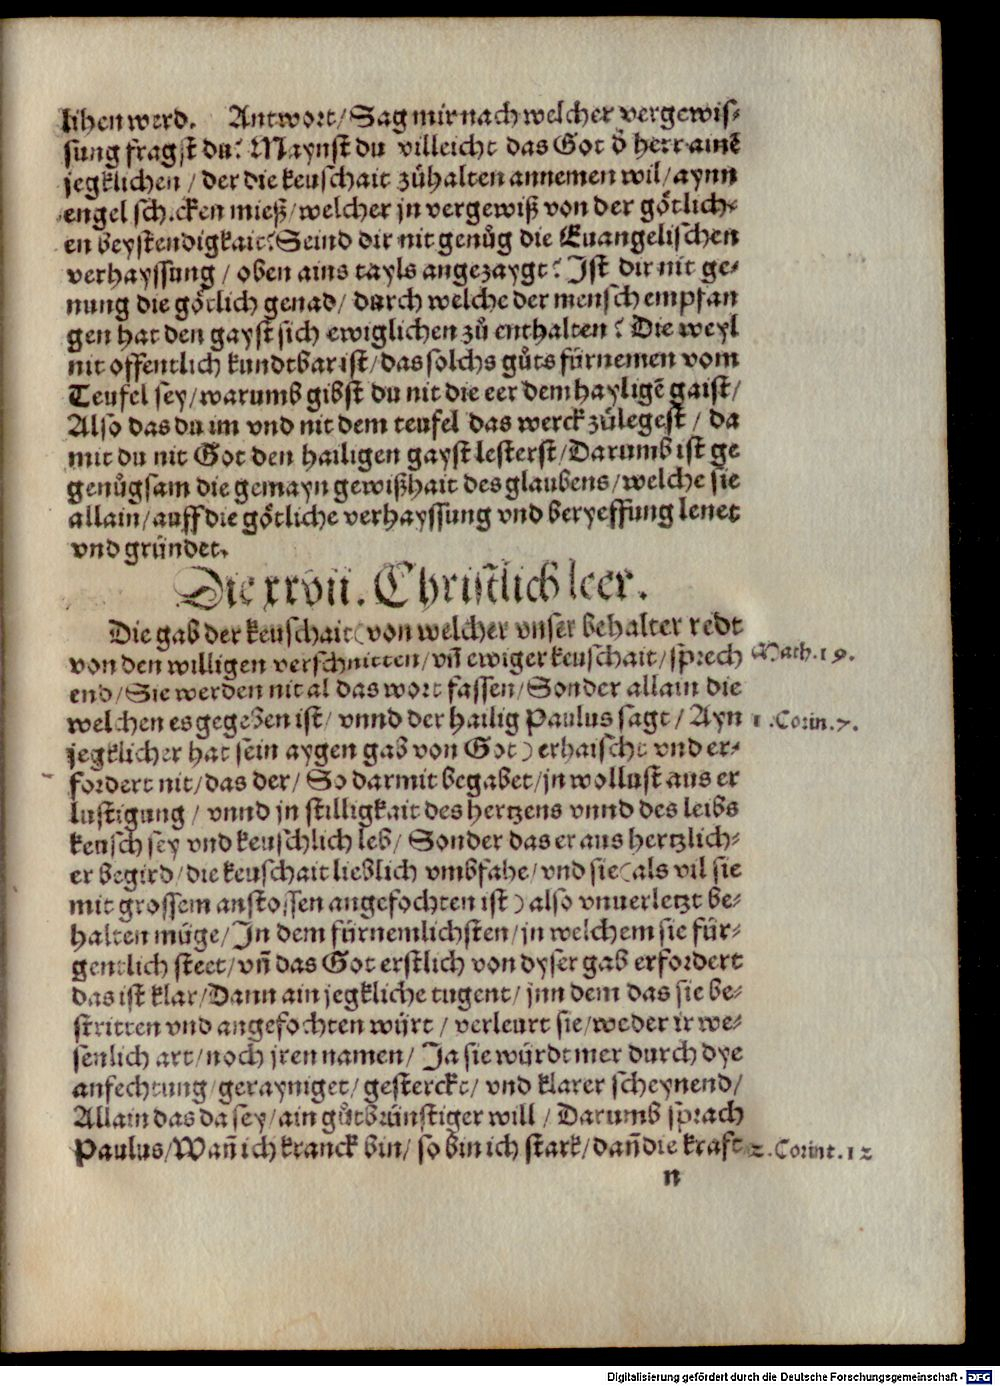 lihen werd. Antwort/Sag mir nach welcher vergewis-
sung fragst du? Maynst du villeicht das Got d̄ herr ainē
jegklichen / der die keuschait zůhalten annemen wil/aynn
engel schicken mieß/welcher jn vergewiß von der götlich-
en beystendigkait? Seind dir nit genůg die Euangelischen
verhayssung / oben ains tayls angezaygt? Jst dir nit ge-
nung die götlich genad/ durch welche der mensch empfan
gen hat den gayst sich ewiglichen zů enthalten? Die weyl
nit offentlich kundtbar ist/das solchs gůts fürnemen vom
Teufel sey/warumb gibst du nit die eer dem hayligē gaist/
Also das du im vnd nit dem teufel das werck zůlegest / da
mit du nit Got den hailigen gayst lesterst/Darumb ist ge
genůgsam die gemayn gewißhait des glaubens/welche sie
allain/auff die götliche verhayssung vnd beryeffung lenet
vnd gründet.
Die xxvii. Christlich leer.
Die gab der keuschait (von welcher vnser behalter redt
von den willigen verschnitten/vñ ewiger keuschait/sprech
end/Sie werden nit al das wort fassen/Sonder allain die
welchen es gegeben ist/ vnnd der hailig Paulus sagt/ Ayn
jegklicher hat sein aygen gab von Got) erhaischt vnd er-
fordert nit/das der/ So darmit begabet/jn wollust aus er
lustigung / vnnd jn stilligkait des hertzens vnnd des leibs
keusch sey vnd keuschlich leb/ Sonder das er aus hertzlich-
er begird/die keuschait lieblich vmbfahe/vnd sie (als vil sie
mit grossem anstossen angefochten ist) also vnuerletzt be-
halten müge/Jn dem fürnemlichsten/jn welchem sie für-
gentlich steet/vñ das Got erstlich von dyser gab erfordert
das ist klar/Dann ain jegkliche tugent/jnn dem das sie be-
stritten vnd angefochten würt / verleurt sie/weder ir we-
senlich art/noch jren namen/ Ja sie würdt mer durch dye
anfechtung/gerayniget/gesterckt/ vnd klarer scheynend/
Allain das da sey/ain gůtbrünstiger will / Darumb sprach
Paulus/Wañ ich kranck bin/ so bin ich stark/dañ die kraft
n
Math.19.
1.Corin.7.
2.Corint.12
Digitalisierung gefördert durch die Deutsche Forschungsgemeinschaft - DFG